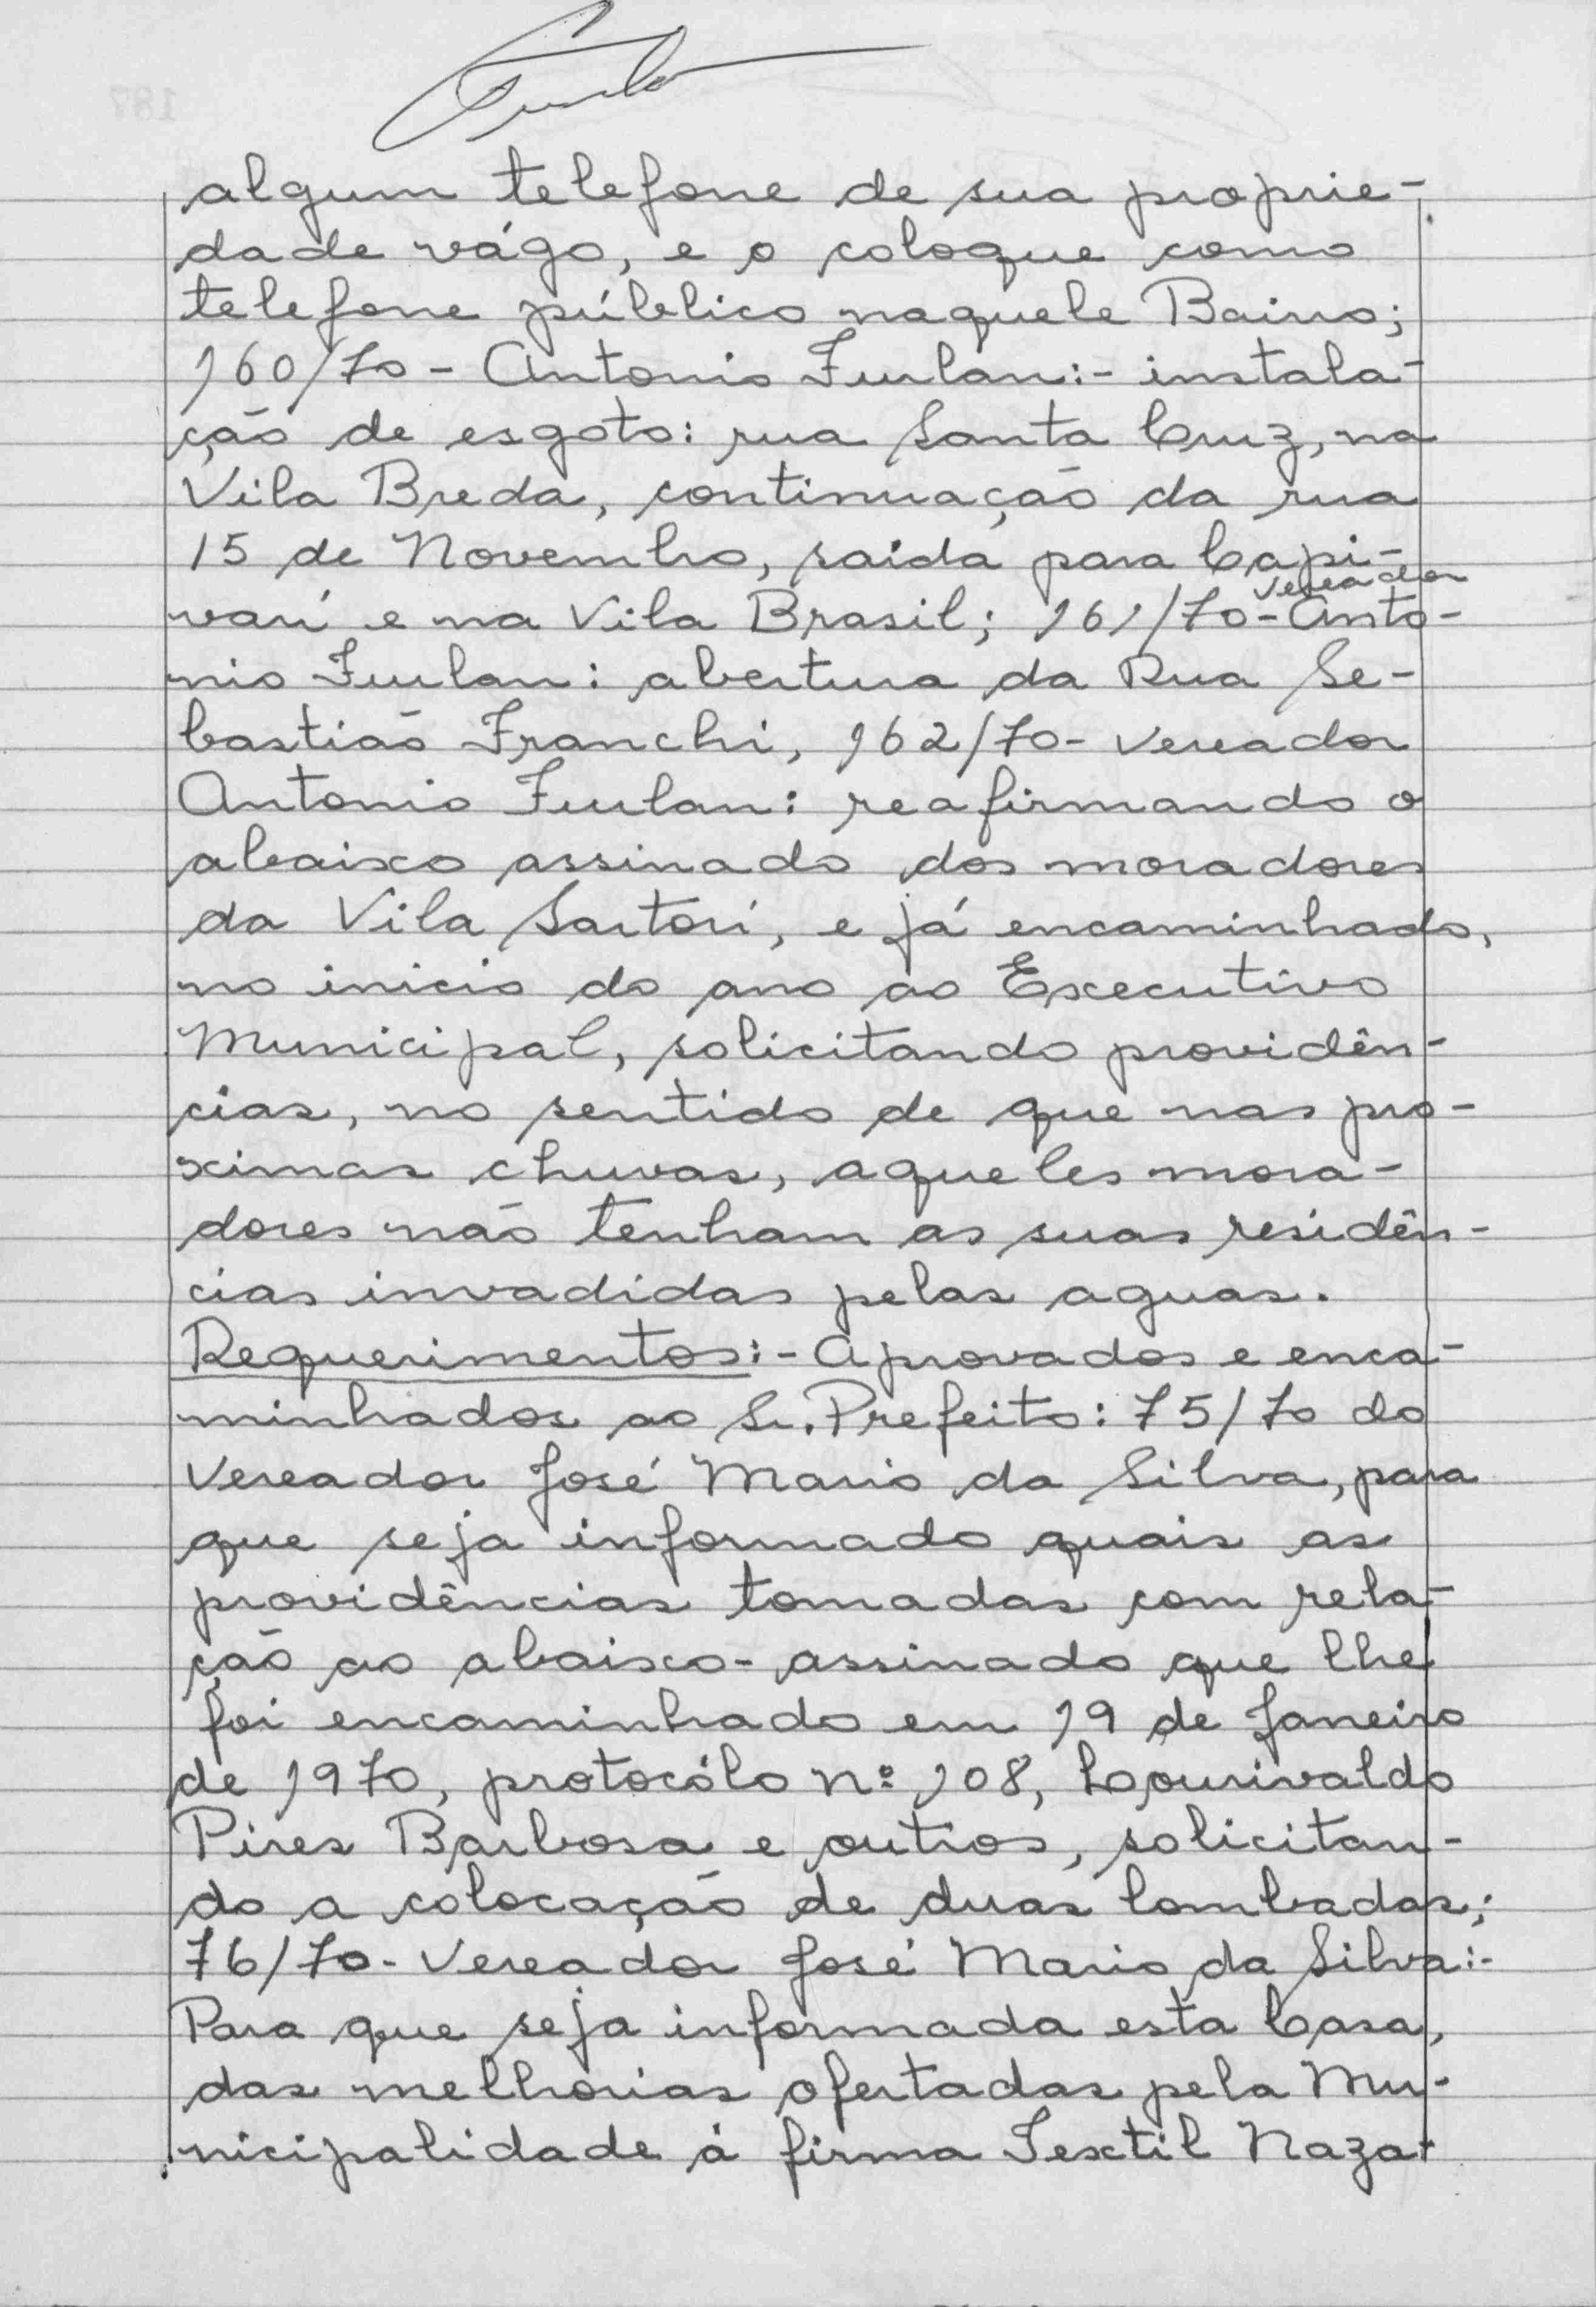 algum telefone de sua proprie-
dade vágo, e o coloque como
telefone público naquele Bairro;
160/70 - Antonio Furlan:- instala-
ção de esgoto: rua Santa Cruz, na
Vila Breda, continuação da rua
15 de Novembro, saida para Capi-
vereador
varí e na Vila Brasil; 161/70 - Anto-
nio Furlan: abertura da Rua Se-
bastião Franchi, 162/70 - Vereador
Antonio Furlan: reafirmando o
abaixo assinado dos moradores
da Vila Sartorí, e já encaminhado,
no inicio do ano ao Executivo
Municipal, solicitando providên-
cias, no sentido de que nas pro-
ximas chuvas, aqueles mora-
dores não tenham as suas residên-
cias invadidas pelas aguas.
Requerimentos:- Aprovados e enca-
minhados ao Sr. Prefeito: 75/70 do
Vereador José Mario da Silva, para
que seja informado quais as
providências tomadas com rela-
ção ao abaixo-assinado que lhe
foi encaminhado em 19 de Janeiro
de 1970, protocólo nº 108, Lourivaldo
Pires Barbosa e outros, solicitan-
do a colocação de duas lombadas;
76/70 - Vereador José Mario da Silva:-
Para que seja informada esta Casa,
das melhorias ofertadas pela Mu-
nicipalidade á firma Textil Naza-